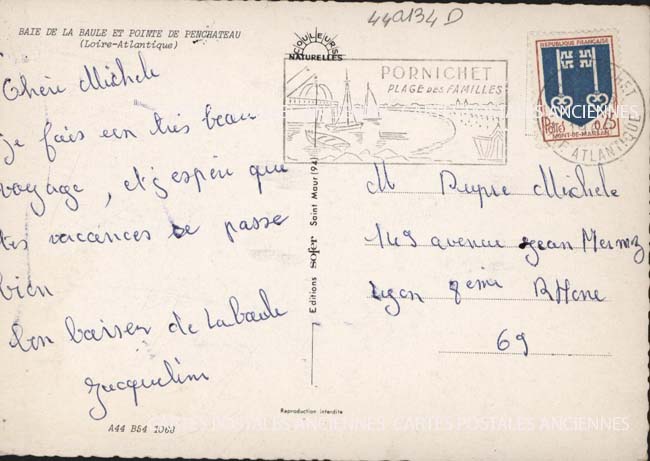 440134 D
BAIE DE LA BAULE ET POINTE DE PENCHATEAU
(Loire-Atlantique)
COULEURS
NATURELLES
PORNICHET
PLAGE DES FAMILLES
REPUBLIQUE FRANÇAISE
Postes 0,25
MONT-DE-MARSAN
LOIRE ATLANTIQUE
Chère Michele
je fais un très beau
voyage, et j'espère que
tes vacances se passe
bien
bon baiser de La baule
Jacqueline
M Dupre Michele
149 avenue Jean Mermoz
Lyon 8eme Rhone
69
Editions sofer Saint Maur (94)
Reproduction interdite
A44 B54 1063
CARTES POSTALES ANCIENNES CARTES POSTALES ANCIENNES